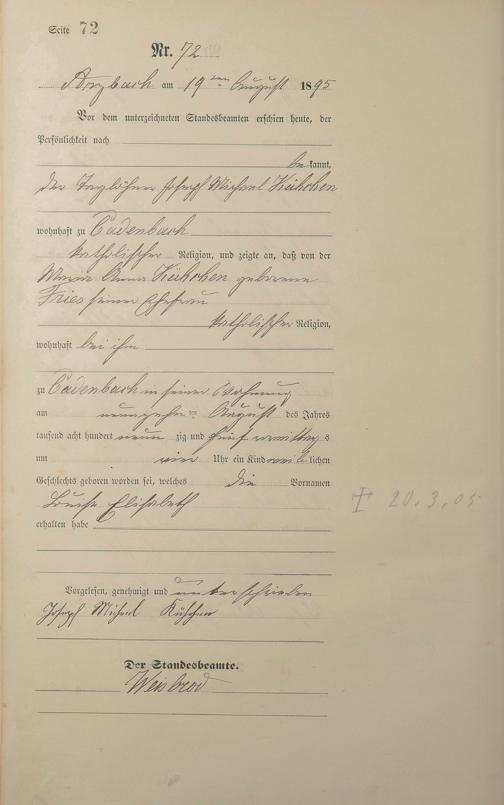 Seite 72
Nr. 72
Arzbach am 19ten August 1895
Vor dem unterzeichneten Standesbeamten erschien heute, der
Persönlichkeit nach
be kannt,
der Taglöhner Joseph Michael Kühchen
wohnhaft zu Cadenbach
katholischer Religion, und zeigte an, daß von der
Maria Anna Kühchen geborene
Fries seiner Ehefrau
katholischer Religion,
wohnhaft bei ihm
zu Cadenbach in seiner Wohnung
am neunzehnten August des Jahres
tausend acht hundert neun zig und fünf vormittags
um vier Uhr ein Kind weiblichen
Geschlechts geboren worden sei, welches die Vornamen
Louise Elisabeth
erhalten habe
✝ 20.3.05
Vorgelesen, genehmigt und unterschrieben
Joseph Michael Kühchen
Der Standesbeamte.
Weisbrod